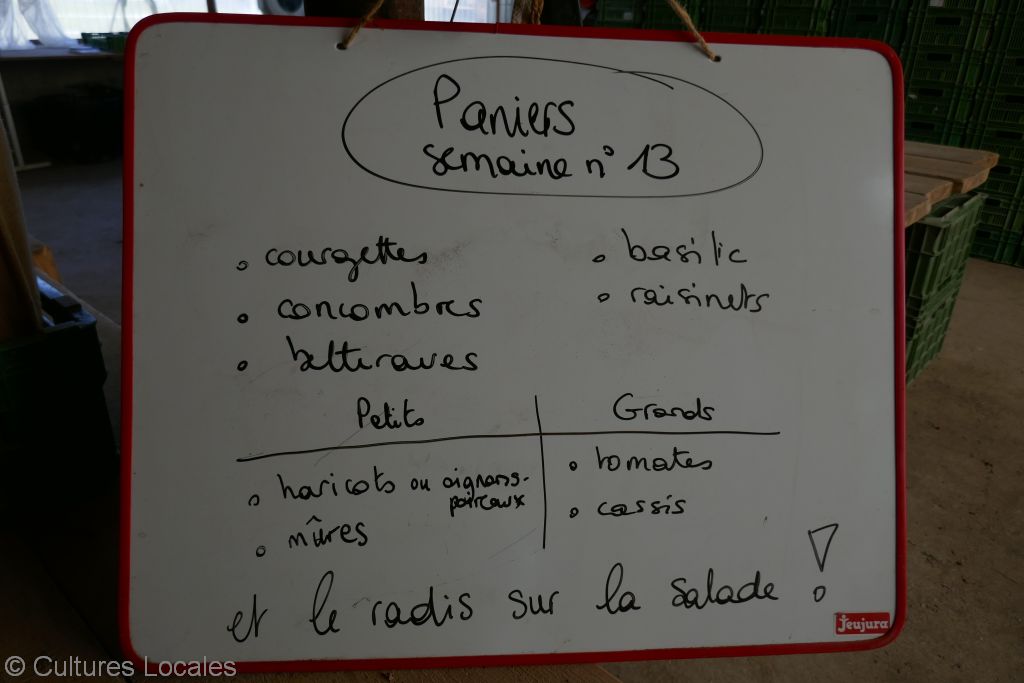 Paniers
semaine n° 13
• courgettes
• concombres
• betteraves
• basilic
• raisinets
Petits
• haricots ou oignons-
poireaux
• mûres
Grands
• tomates
• cassis
et le radis sur la salade !
Jeujura
© Cultures Locales